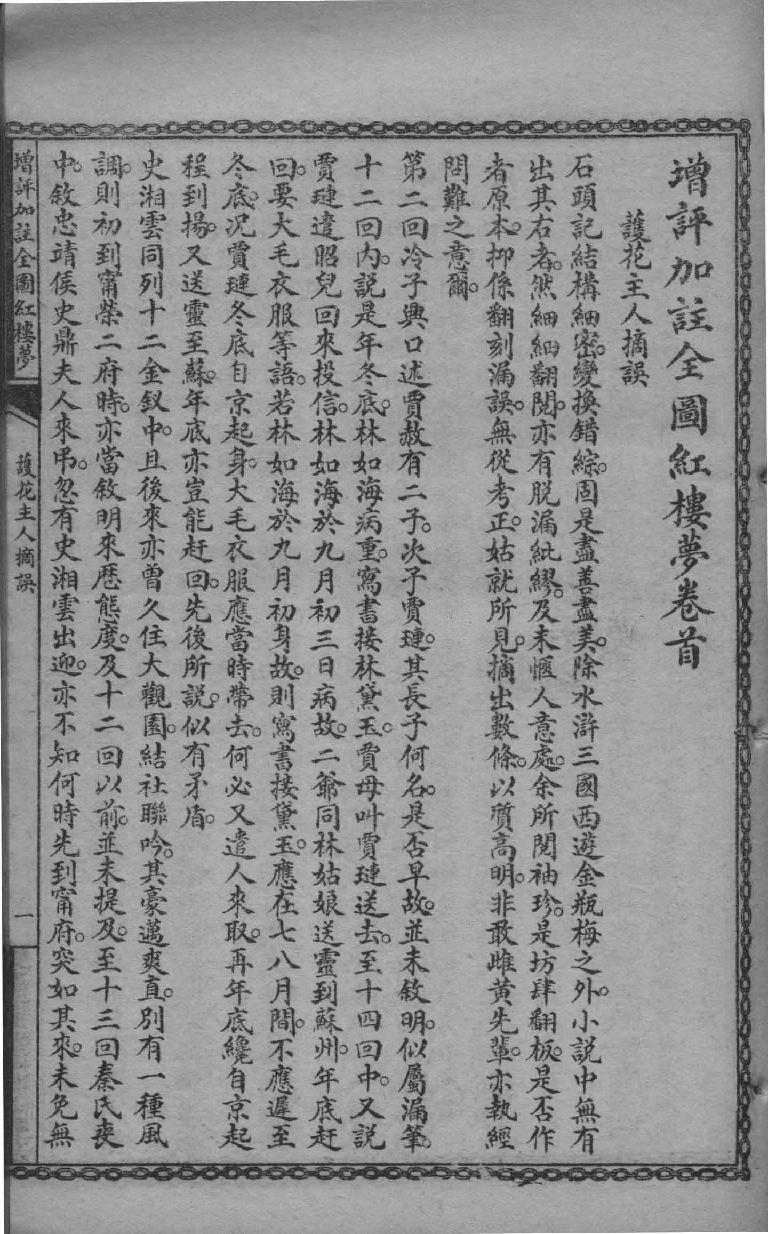 增評加註全圖紅樓夢卷首
護花主人摘誤
石頭記結構細密。變換錯綜。固是盡善盡美。除水滸三國西遊金瓶梅之外。小說中無有
出其右者。然細細翻閱。亦有脫漏紕繆。及未愜人意處。余所閱袖珍。是坊肆翻板。是否作
者原本。抑係翻刻漏誤。無從考正。姑就所見。摘出數條。以質高明。非敢雌黃先輩。亦執經
問難之意爾。
第二回冷子興口述賈赦有二子。次子賈璉。其長子何名。是否早故。並未敘明。似屬漏筆。
十二回內。說是年冬底。林如海病重。寫書接林黛玉。賈母叫賈璉送去。至十四回中。又說
賈璉遣昭兒回來投信。林如海於九月初三日病故。二爺同林姑娘送靈到蘇州。年底赶
回。要大毛衣服等語。若林如海於九月初身故。則寫書接黛玉。應在七八月間。不應遲至
冬底。况賈璉冬底自京起身。大毛衣服應當時帶去。何必又遣人來取。再年底纔自京起
程到揚。又送靈至蘇。年底亦豈能赶回。先後所說。似有矛盾。
史湘雲同列十二金釵中。且後來亦曾久住大觀園。結社聯吟。其豪邁爽直。別有一種風
調。則初到甯榮二府時。亦當敘明來歷態度。及十二回以前。並未提及。至十三回秦氏喪
中。敘忠靖侯史鼎夫人來吊。忽有史湘雲出迎。亦不知何時先到甯府。突如其來。未免無
增評加註全圖紅樓夢
護花主人摘誤
一